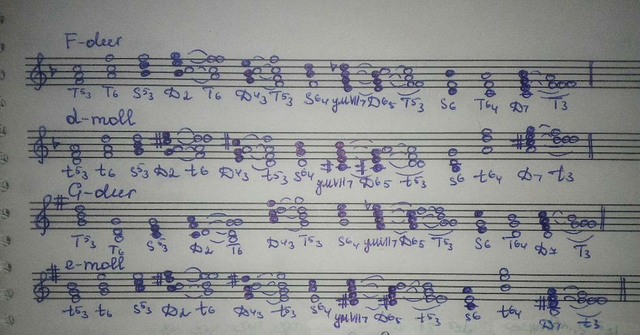 F-dur
T53 T6 S53 D2 T6 D43 T53 S64 умVII7 D65 T53 S6 T64 D7 T3
d-moll
t53 t6 S53 D2 t6 D43 t53 S64 умVII7 D65 t53 S6 t64 D7 t3
G-dur
T53 T6 S53 D2 T6 D43 T53 S64 умVII7 D65 T53 S6 T64 D7 T3
e-moll
t53 t6 S53 D2 t6 D43 t53 S64 умVII7 D65 t53 S6 t64 D7 t3